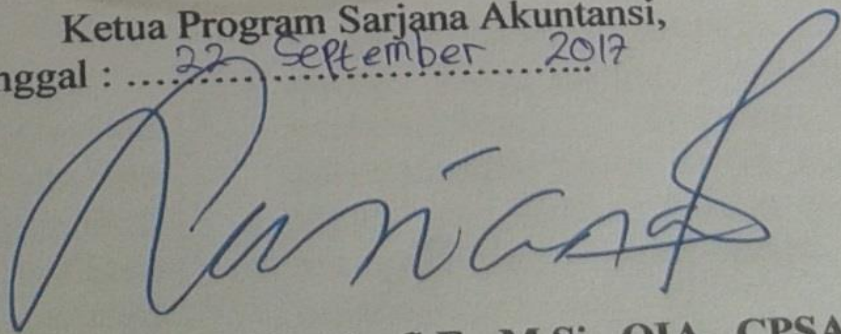 Ketua Program Sarjana Akuntansi,
nggal : ....22 September 2017
M.Si., QIA., CPSA